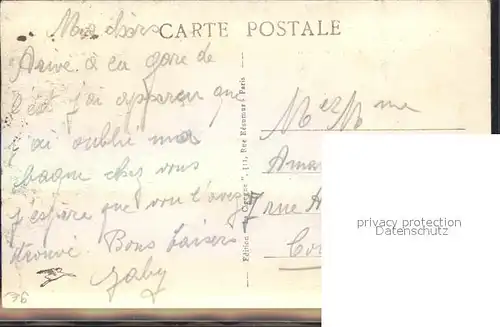 CARTE POSTALE
Mes chers
Arivé à la gare de
l'est j'ai apparcu que
j'ai oublié ma
bague chez vous
j'espère que vous l'avez
trouvé. Bons baisers
Gaby
Edition 111, Rue Réaumur, Paris
M et Mme
7 rue
privacy protection
Datenschutz